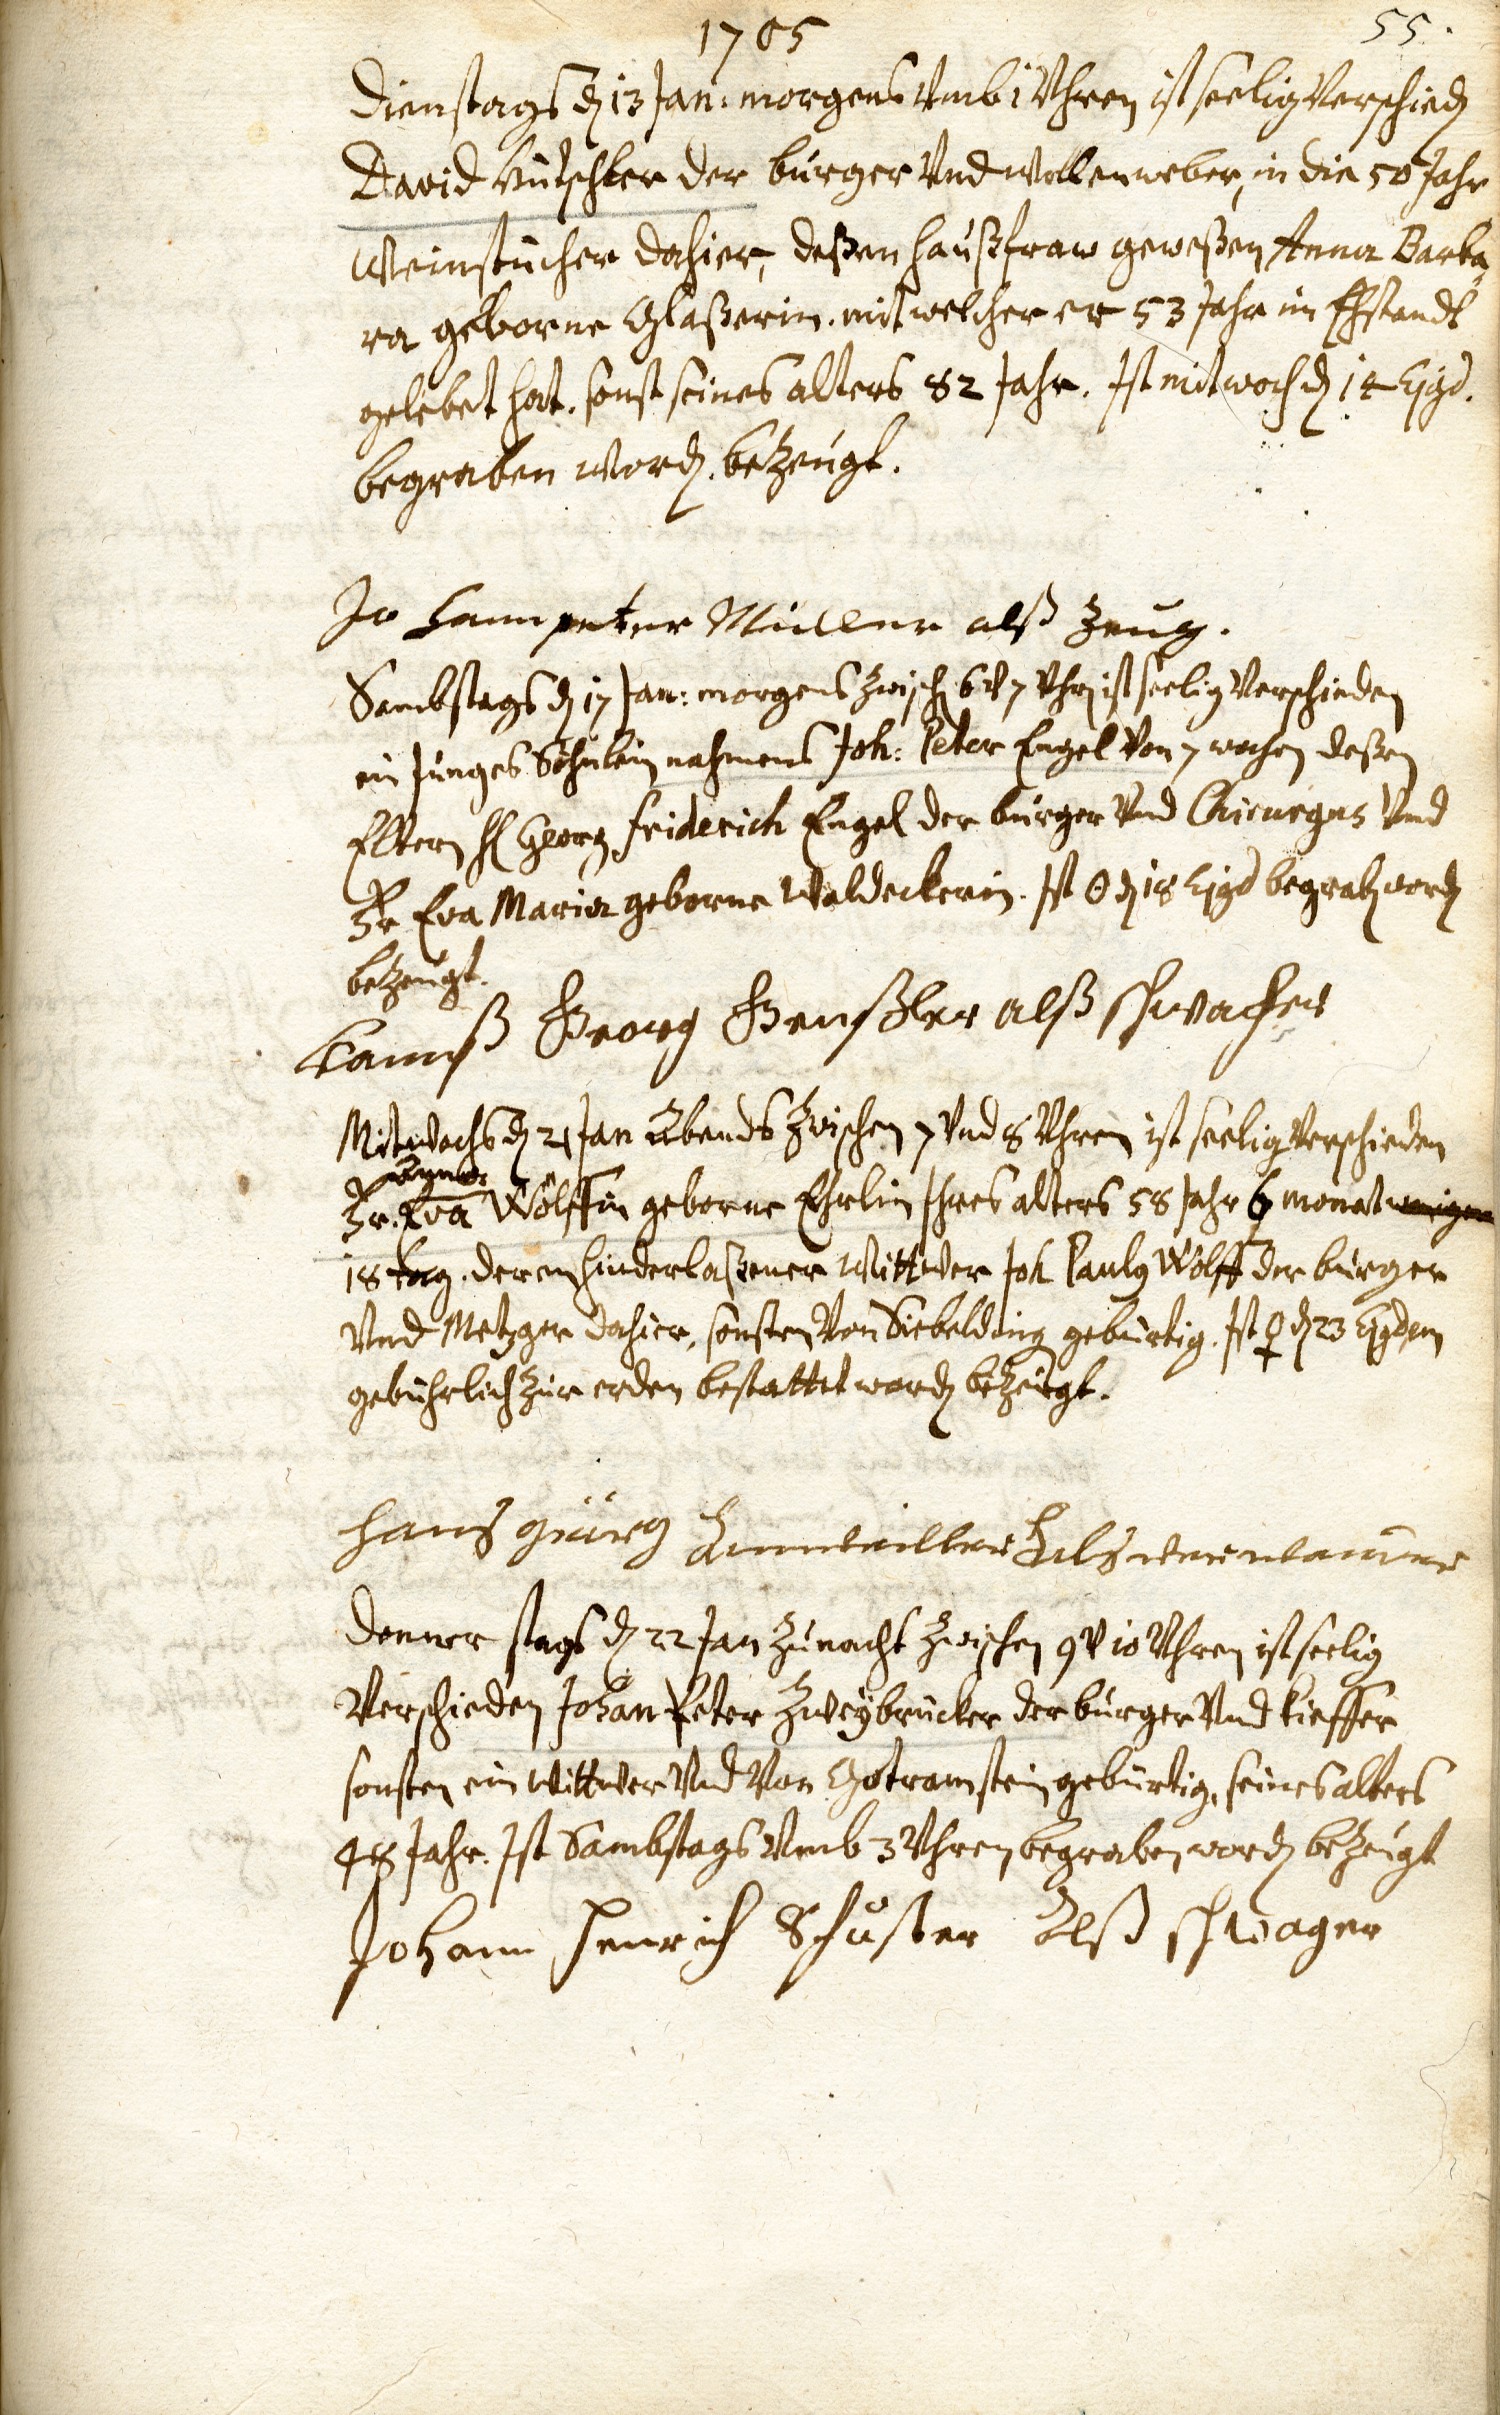 1705
55.
Dienstags d 13 Jan: morgens Vmb 1 Vhren ist seelig Verschied
David der bürger Vnd wollenweber, in die 50 Jahr
Weinsticher dahier, deßen haußfraw geweßen Anna Barba
ra geborne Glaßerin. mit welcher er 53 Jahr im Ehstandt
gelebet hat. sonst seines alters 82 Jahr. Ist mitwoch d 14 Ejgd.
begraben word. bezeügt.
Jo hann peter Müller alß zeug.
Sambstags d 17 Jan: morgens zwisch 6 V 7 Vhr ist seelig Verschieden
ein Junges Söhnlein nahmens Joh: Peter Engel Von 7 wochen deßen
Eltern H Georg Friderich Engel der bürger Vnd Chirurgus Vnd
Fr Eva Maria geborne Waldeckerin. Ist ☉ d 18 Ejgd begrab word
bezeugt.
Hannß Georg alß
Mitwochs d 21 Jan Abends zwischen 7 Vnd 8 Vhren ist seelig Verschieden
Fr. Eva Wölffin geborne Ehrlin Ihres alters 58 Jahr 6 monat
18 tag. deren hinderlaßener Wittwer Joh Pauly Wolff der bürger
Vnd Metzger dahier, sonsten Von Siebelding gebürtig. Ist ♀ d 23 Ejgdem
gebührlich zur erden bestattet word bezeügt.
Hans görg
Donner stags d 22 Jan zu nacht zwischen 9 V 10 Vhren ist seelig
Verschieden Johan Peter Zweybrücker der bürger Vnd kieffer
sonsten ein Wittwer Vnd Von Gotramstein gebürtig, seines alters
48 Jahr. Ist Sambstags Vmb 3 Vhren begraben word bezeügt
Johann Henrich Schuster Alß schwager